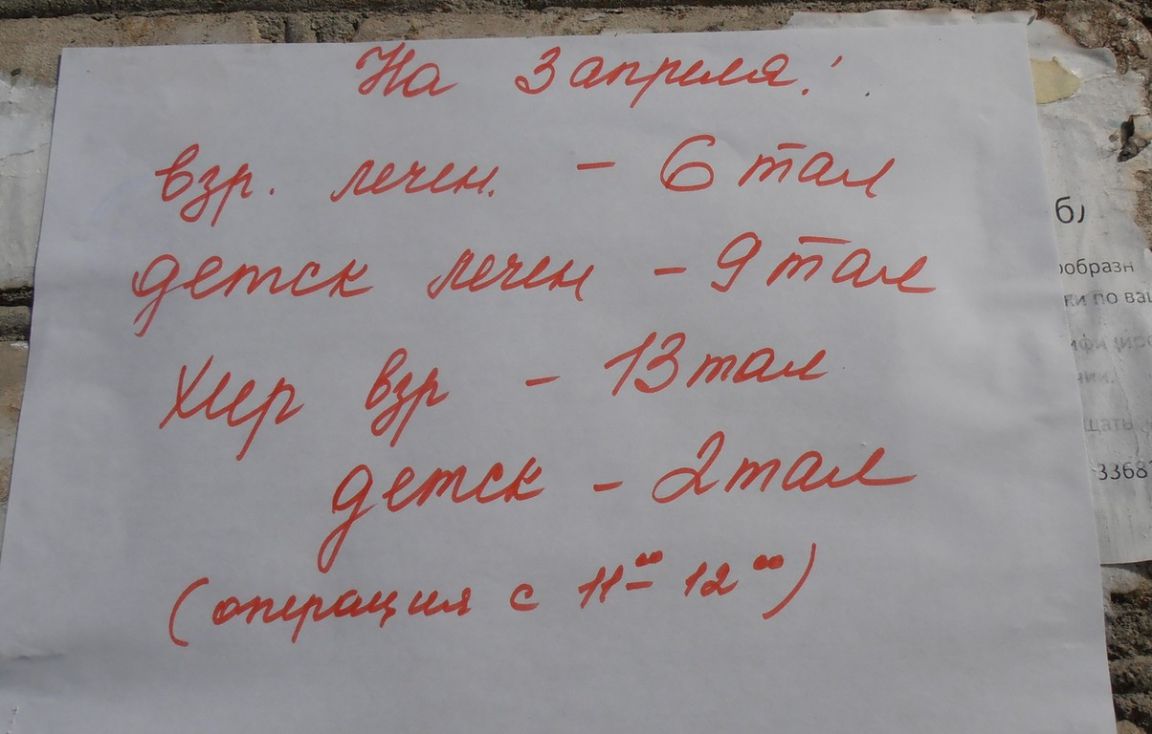 На 3 апреля!
взр. лечен. - 6 тал
детск лечен - 9 тал
Хир взр - 13 тал
детск - 2 тал
(операция с 11⁰⁰ - 12⁰⁰)
б)
образн
ки по ваш
щать
3368